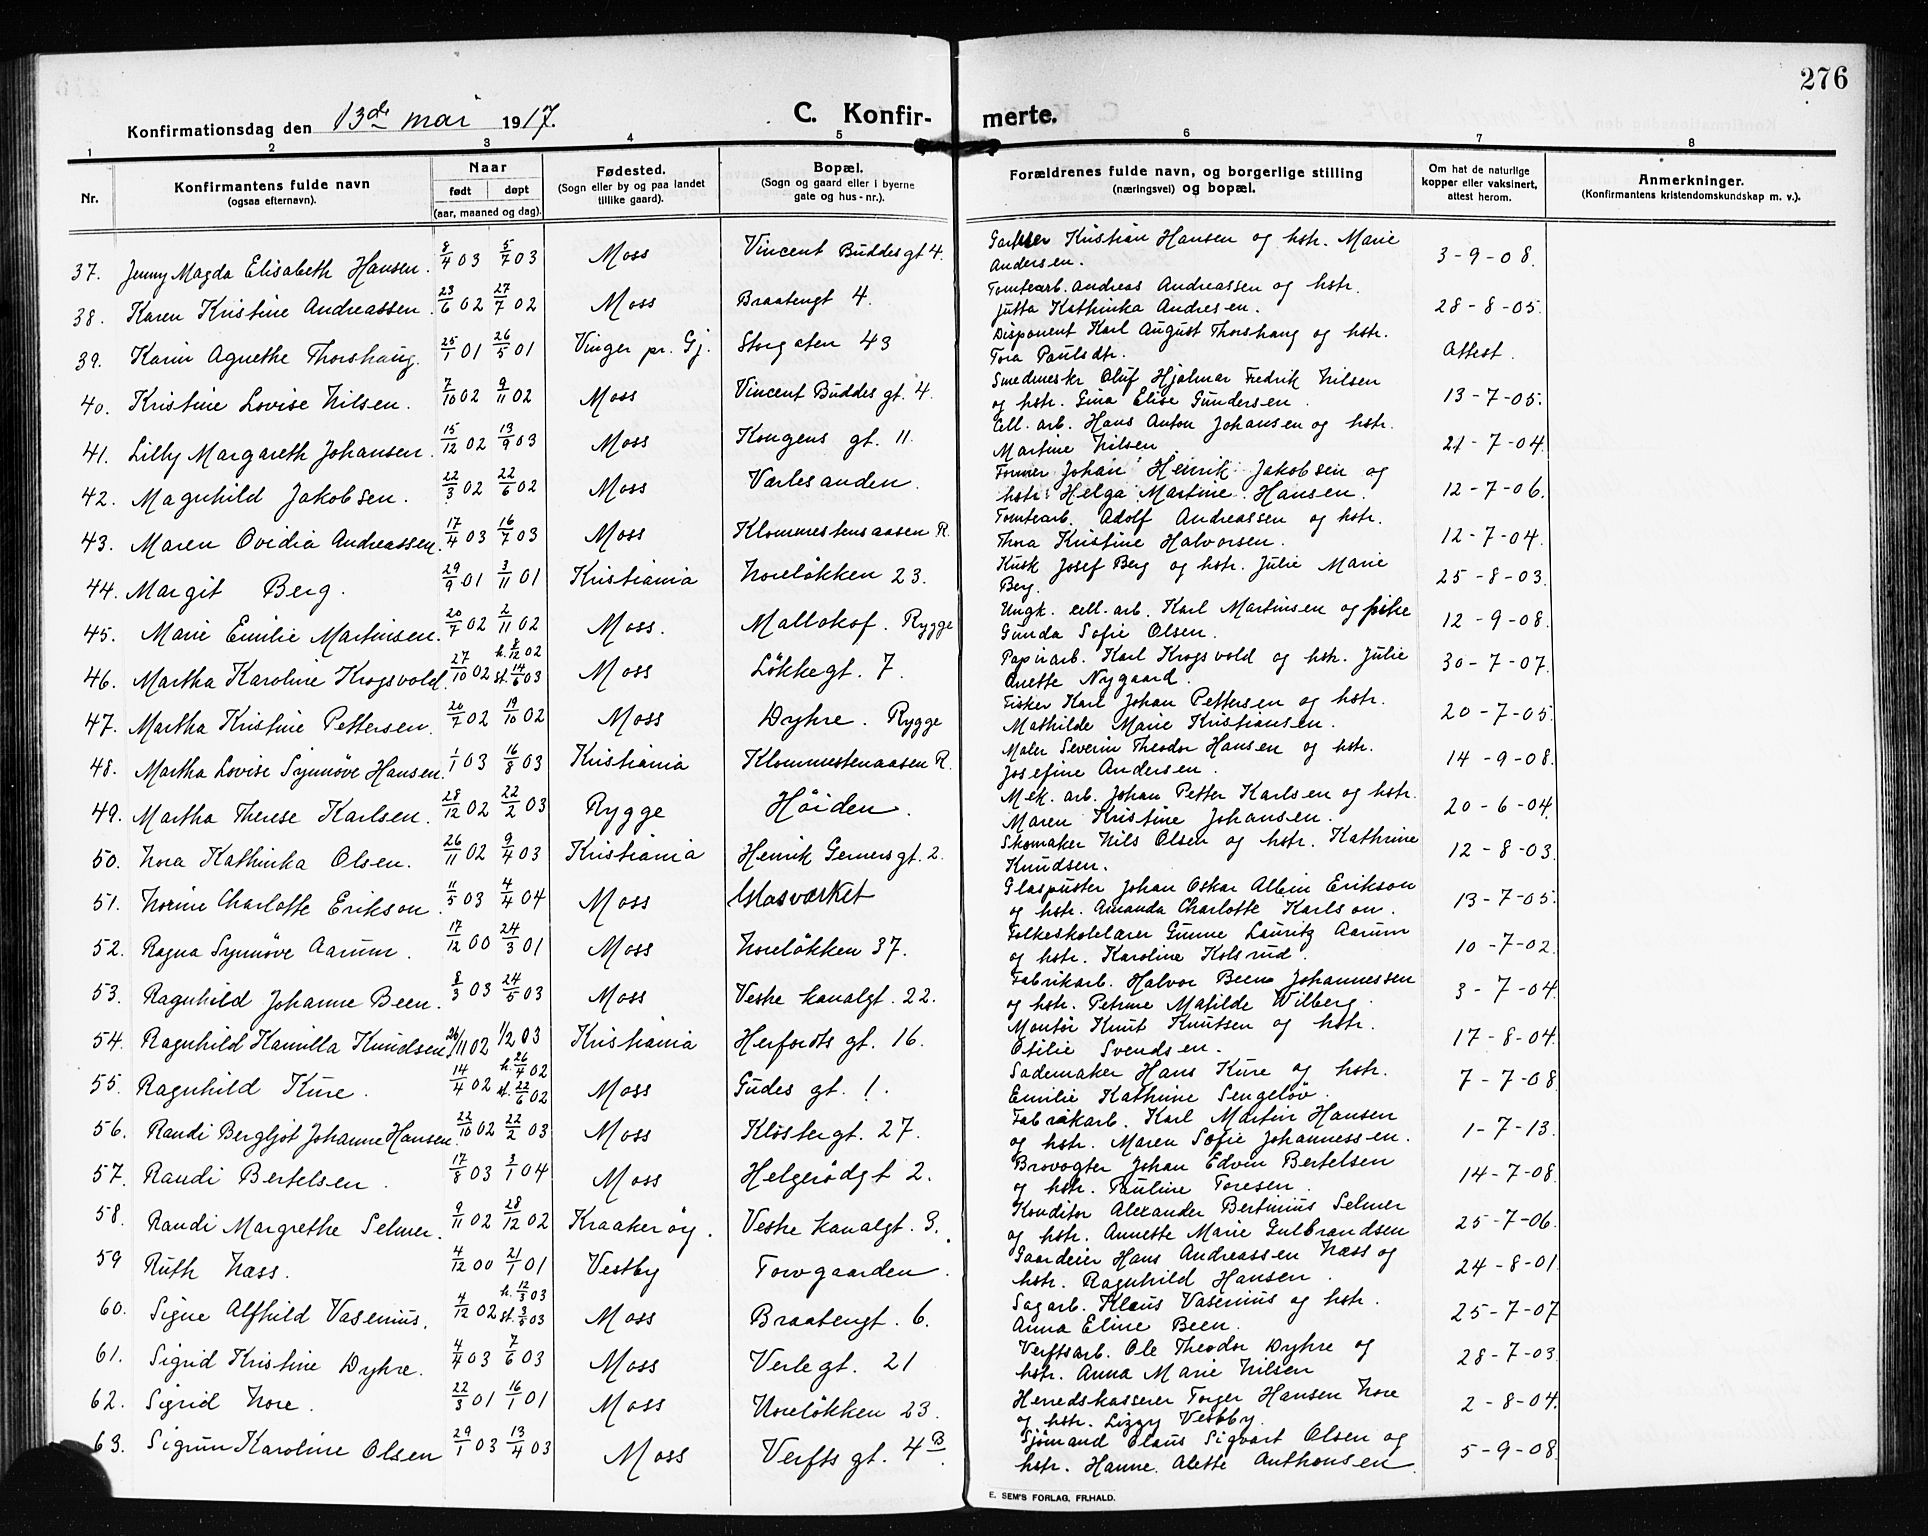 276
Konfirmationsdag den 13de mai 1917. C. Konfir- merte.
1 2 3 4 5 6 7 8
Nr. Konfirmantens fulde navn (ogsaa efternavn). Naar født døpt (aar, maaned og dag). Fødested. (Sogn eller by og paa landet tillike gaard). Bopæl. (Sogn og gaard eller i byerne gate og hus-nr.). Forældrenes fulde navn, og borgerlige stilling (næringsvei) og bopæl. Om hat de naturlige kopper eller vaksinert, attest herom. Anmerkninger. (Konfirmantens kristendomskundskap m. v.).
37. Jenny Magda Elisabeth Hansen. 8/4 03 5/7 03 Moss Vincent Buddesgt 4. Kristian Hansen og hstr. Marie Andersen. 3-9-08.
38. Karen Kristine Andreassen. 23/6 02 27/7 02 Moss Braatengt 4. Tomtearb. Andreas Andreassen og hstr. Jutta Kathinka Andresen. 28-8-05.
39. Karin Agnethe Thorshaug. 25/1 01 26/5 01 Vinger pr. Gj. Storgaten 43 Disponent Karl August Thorshaug og hstr. Tora Paulsdtr. Attest.
40. Kristine Lovise Nilsen. 7/10 02 9/11 02 Moss Vincent Buddes gt. 4. Smedmestr Oluf Hjalmar Fredrik Nilsen og hstr. Gina Elise Gundersen. 13-7-05.
41. Lilly Margareth Johansen. 15/12 02 13/9 03 Moss Kongens gt. 11. Cell. arb. Hans Anton Johansen og hstr. Martine Nilsen. 21-7-04.
42. Magnhild Jakobsen. 22/3 02 22/6 02 Moss Værlesanden. Former Johan Henrik Jakobsen og hstr. Helga Martine Hansen. 12-7-06.
43. Maren Ovidia Andreassen. 17/4 03 16/7 03 Moss Klommestensaasen R. Tomtearb. Adolf Andreassen og hstr. Thora Kristine Halvorsen. 12-7-04.
44. Margit Berg. 29/9 01 3/11 01 Kristiania Noreløkken 23. Kusk Josef Berg og hstr. Julie Marie Berg. 25-8-03.
45. Marie Emilie Martinsen. 20/7 02 2/11 02 Moss. Mallakof. Rygge Ungk. cell. arb. Karl Martinsen og pike Gunda Sofie Olsen. 12-9-08.
46. Martha Karoline Krogsvold. 27/10 02 h. 8/12 02 st. 14/6 03 Moss Løkkegt. 7. Papirarb. Karl Krogsvold og hstr. Julie Anette Nygaard. 30-7-07.
47. Martha Kristine Pettersen. 20/7 02 19/10 02 Moss Dyhre. Rygge Fisker Karl Johan Pettersen og hstr. Mathilde Marie Kristiansen. 20-7-05.
48. Martha Lovise Synnøve Hansen. 1/1 03 16/8 03 Kristiania Klommestenaasen R. Maler Severin Theodor Hansen og hstr. Josefine Andersen. 14-9-08.
49. Martha Therese Karlsen. 28/12 02 22/2 03 Rygge Høiden. Mek. arb. Johan Petter Karlsen og hstr. Maren Kristine Johansen. 20-6-04.
50. Nora Kathinka Olsen. 26/11 02 9/4 03 Kristiania Henrik Gernersgt. 2. Skomaker Nils Olsen og hstr. Kathrine Knudsen. 12-8-03.
51. Norine Charlotte Erikson. 11/5 03 4/4 04 Moss Glasværket Glaspuster Johan Oskar Albin Erikson og hstr. Amanda Charlotte Karlson. 13-7-05.
52. Ragna Synnøve Aarum. 17/12 00 24/3 01 Moss Noreløkken 37. Folkeskolelærer Gunne Lauritz Aarum og hstr. Karoline Kolsrud. 10-7-02.
53. Ragnhild Johanne Been. 8/3 03 24/5 03 Moss Vestre kanalgt. 22. Fabrikarb. Halvor Been Johannessen og hstr. Petrine Matilde Wilberg. 3-7-04.
54. Ragnhild Kamilla Knudsen. 26/11 02 1/2 03 Kristiania Herfordts gt. 16. Montør Knut Knutsen og hstr. Otilie Svendsen. 17-8-04.
55. Ragnhild Kure. 14/4 02 h. 26/4 02 st. 22/6 02 Moss Gudes gt. 1. Sademaker Hans Kure og hstr. Emilie Kathrine Sengeløv. 7-7-08.
56. Randi Bergljot Johanne Hansen. 22/10 02 22/2 03 Moss Klostergt. 27. Fabrikarb. Karl Martin Hansen og hstr. Maren Sofie Johannessen. 1-7-13.
57. Randi Bertelsen. 17/8 03 3/1 04 Moss Helgerødgt 2. Brovogter Johan Edvin Bertelsen og hstr. Pauline Toresen. 14-7-08.
58. Randi Margrethe Selmer. 9/11 02 28/12 02 Kraakerøy. Vestre kanalgt. 3. Konditor Alexander Bertinius Selmer og hstr. Annette Marie Gulbrandsen 25-7-06.
59 Ruth Næss. 4/12 00 21/1 01 Vestby Torvgaarden. Gaardeier Hans Andreassen Næss og hstr. Ragnhild Hansen. 24-8-01.
60. Signe Alfhild Vasenius. 4/12 02 h. 12/3 03 st. 3/5 03 Moss Braatengt. 6. Sagarb. Klaus Vasenius og hstr. Anna Eline Been. 25-7-07
61. Sigrid Kristine Dyhre. 4/4 03 7/6 03 Moss Verlegt. 21 Verftsarb. Ole Theodor Dyhre og hstr. Anna Marie Nilsen 28-7-03.
62. Sigrid Nore. 22/3 01 16/1 01 Moss Noreløkken 23. Herredskasserer Torger Hansen Nore og hstr. Lizzy Vestby. 2-8-04.
63. Sigrun Karoline Olsen 29/1 03 13/4 03 Moss Verfts gt. 4B. Sjømand Olaus Sigvart Olsen og hstr. Hanne Alette Anthonsen. 5-9-08.
E. SEM'S FORLAG, FR.HALD.